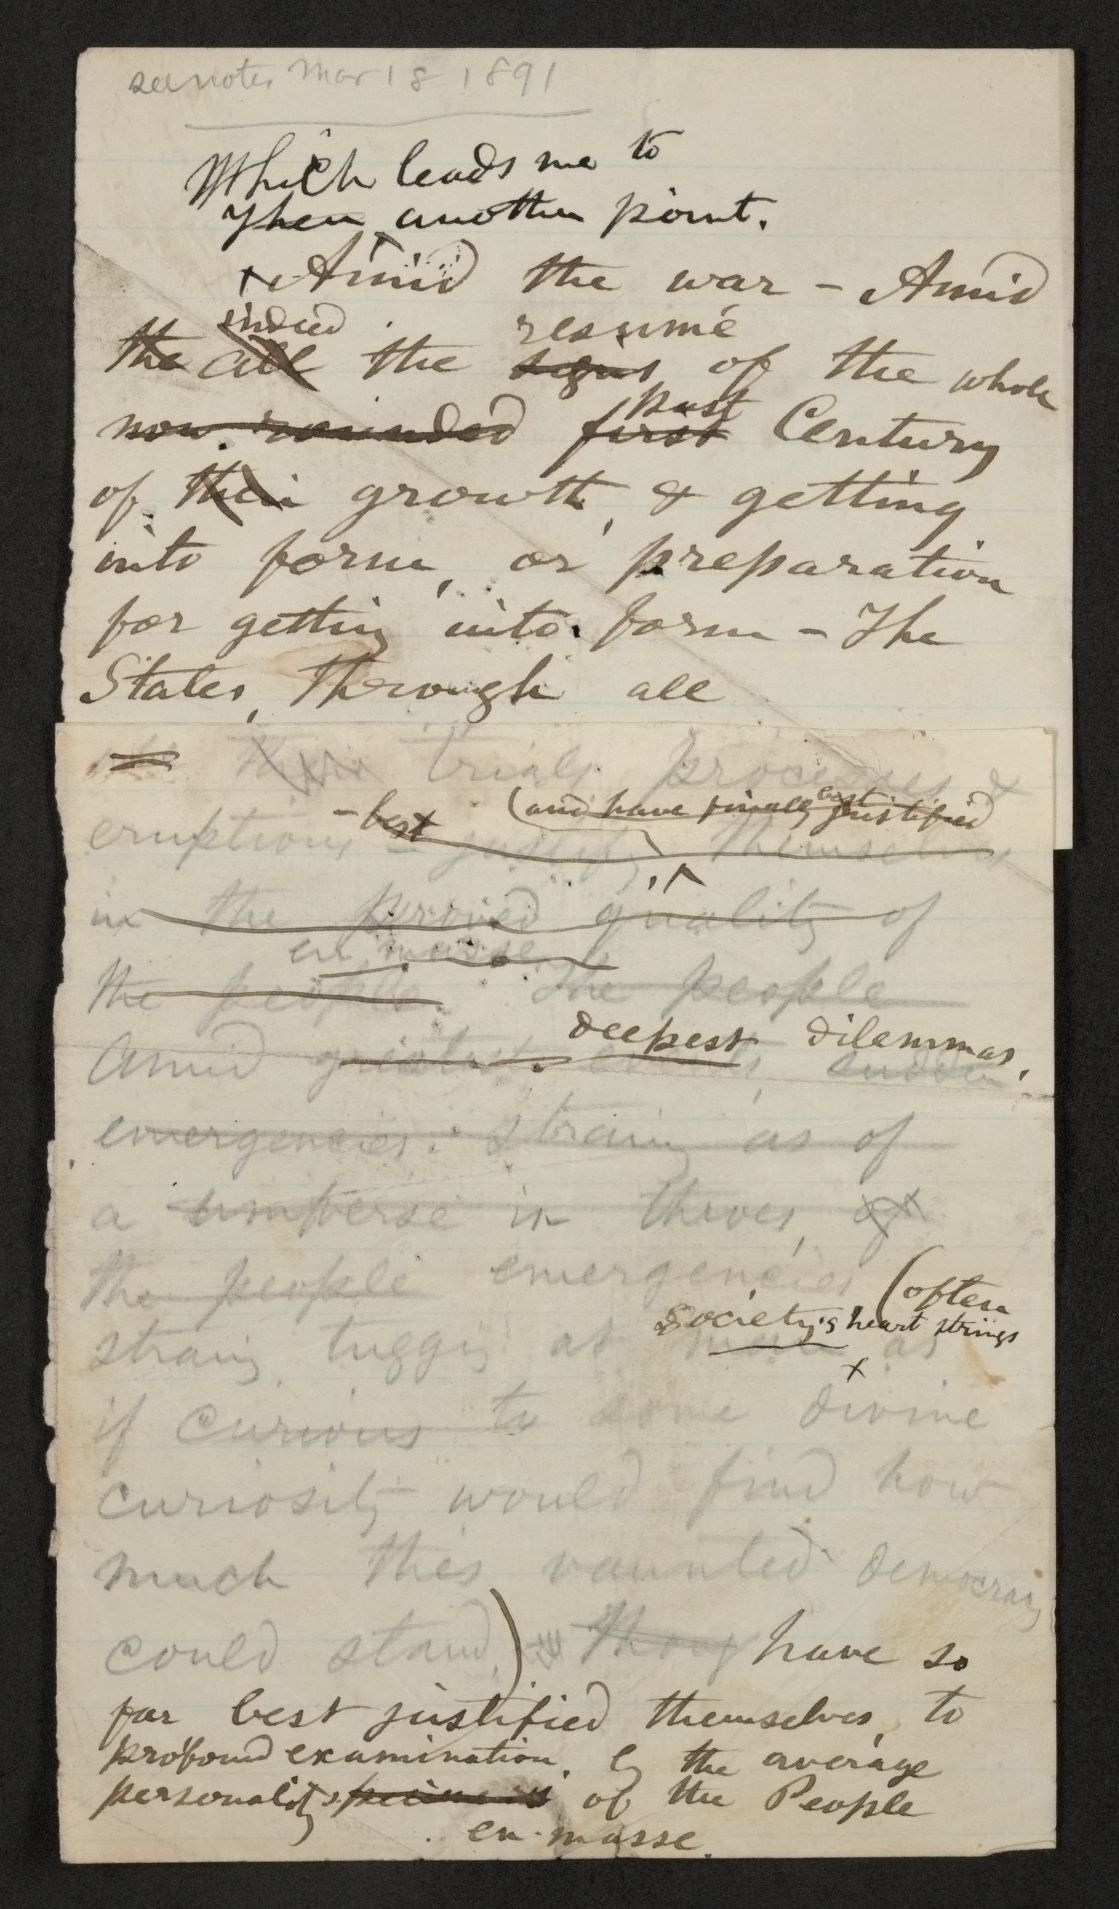 see notes Mar 18 1891
Which leads me to
Then another point.
Amid the war - Amid
indeed resumé
the all the signs of the whole
past
now rounded first Century
of their growth, & getting
into form, or preparation
for getting into form - The
States, through all
their trials, processes &
- best (and have finally best justified
eruptions - justify themselves
in the proved quality of
en masse
the people. The people
deepest dilemmas,
Amid greatest sudden
emergencies: strains as of
a universe in throes, of
the people emergencies
(often
society's heart strings
strains tugging at as
if curious to some divine
curiosity would find how
much this vaunted democracy
could stand,) have so
far best justified themselves, to
profound examination, by the average
personality specimens of the People
en-masse.